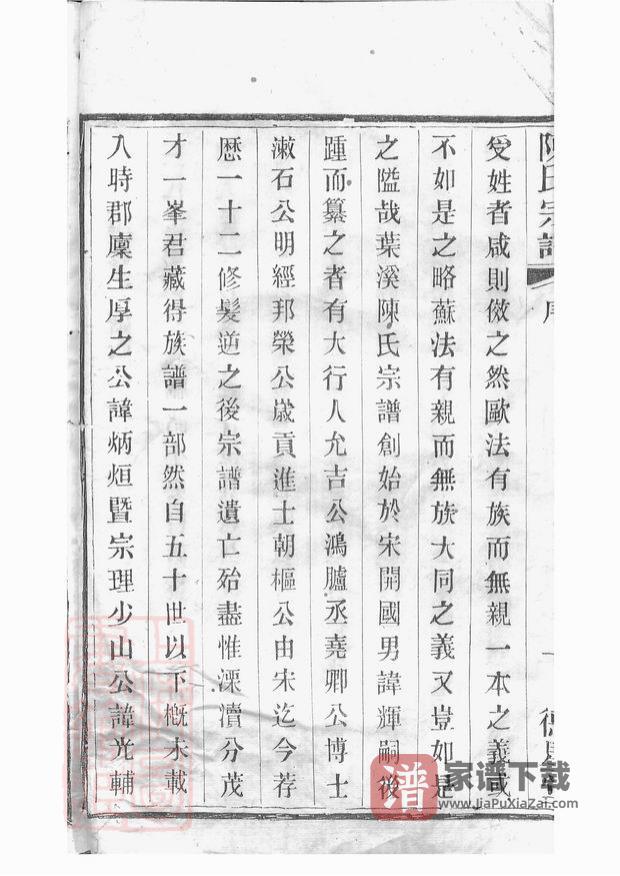 陳氏宗譜
序
一
受姓者咸則倣之然歐法有族而無親一本之義或
不如是之略蘇法有親而無族大同之義又豈如是
之隘哉葉溪陳氏宗譜創始於宋開國男諱輝嗣後
踵而纂之者有大行人允吉公鴻臚丞堯卿公博士
漱石公明經邦榮公歲貢進士朝樞公由宋迄今荐
歷一十二修髮逆之後宗譜遺亡殆盡惟溧瀆分茂
才一峯君藏得族譜一部然自五十世以下概未載
入時郡廩生厚之公諱炳烜暨宗理少山公諱光輔
譜
家谱下载
www.JiaPuXiaZai.com